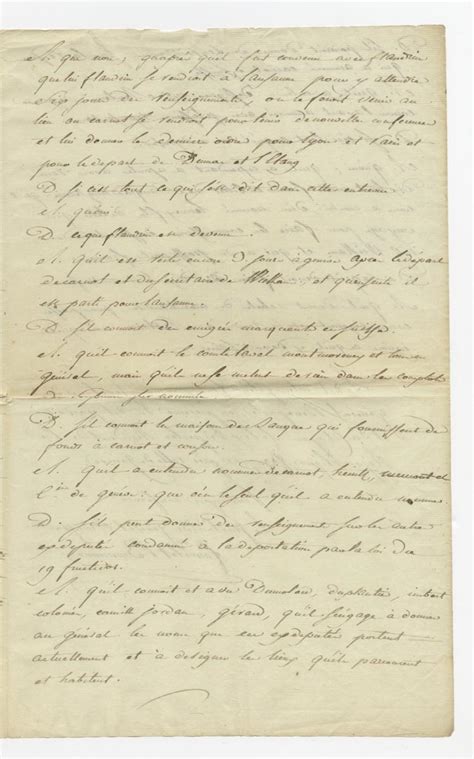 R. que non, qu'après quoi fut convenu avec flandrin
que lui flandrin se rendroit à Lausanne pour y attendre
six jours des renseignements ou le feroit venir au
lieu où carnot se rendroit pour tenir de nouvelle conférence
et lui donner le dernier ordre pour Lyon et Paris et
pour le départ de et
D. si c'est tout ce qui fut dit dans cette entrevue
R. qu'oui
D. ce que flandrin est devenu
R. qu'il est resté encore 3 jours à genève après le départ
de carnot et du secretaire de et qu'ensuite il
est parti pour Lausanne.
D. s'il connoit des émigrés marquants en suisse.
R. qu'il connoit le comte laval montmorency et
, mais qu'il ne se melent de rien dans les complots
D. s'il connoit la maison des banques qui fournissent des
fonds à carnot et
R. qu'il a entendu nommer de carnot, et
C.ie de genève : que c'en le seul qu'il a entendu nommer
D. s'il peut donner des renseignements sur les autres
ex députés condamnés à la déportation par la loi du
19 fructidor.
R. qu'il connoit et a vu Dumolard, duplantier, imbert
colomès, camille jordan, gérard, qu'il s'engage à donner
au général les noms que ces ex députés portent
actuellement et à désigner les lieux qu'ils parcourent
et habitent.